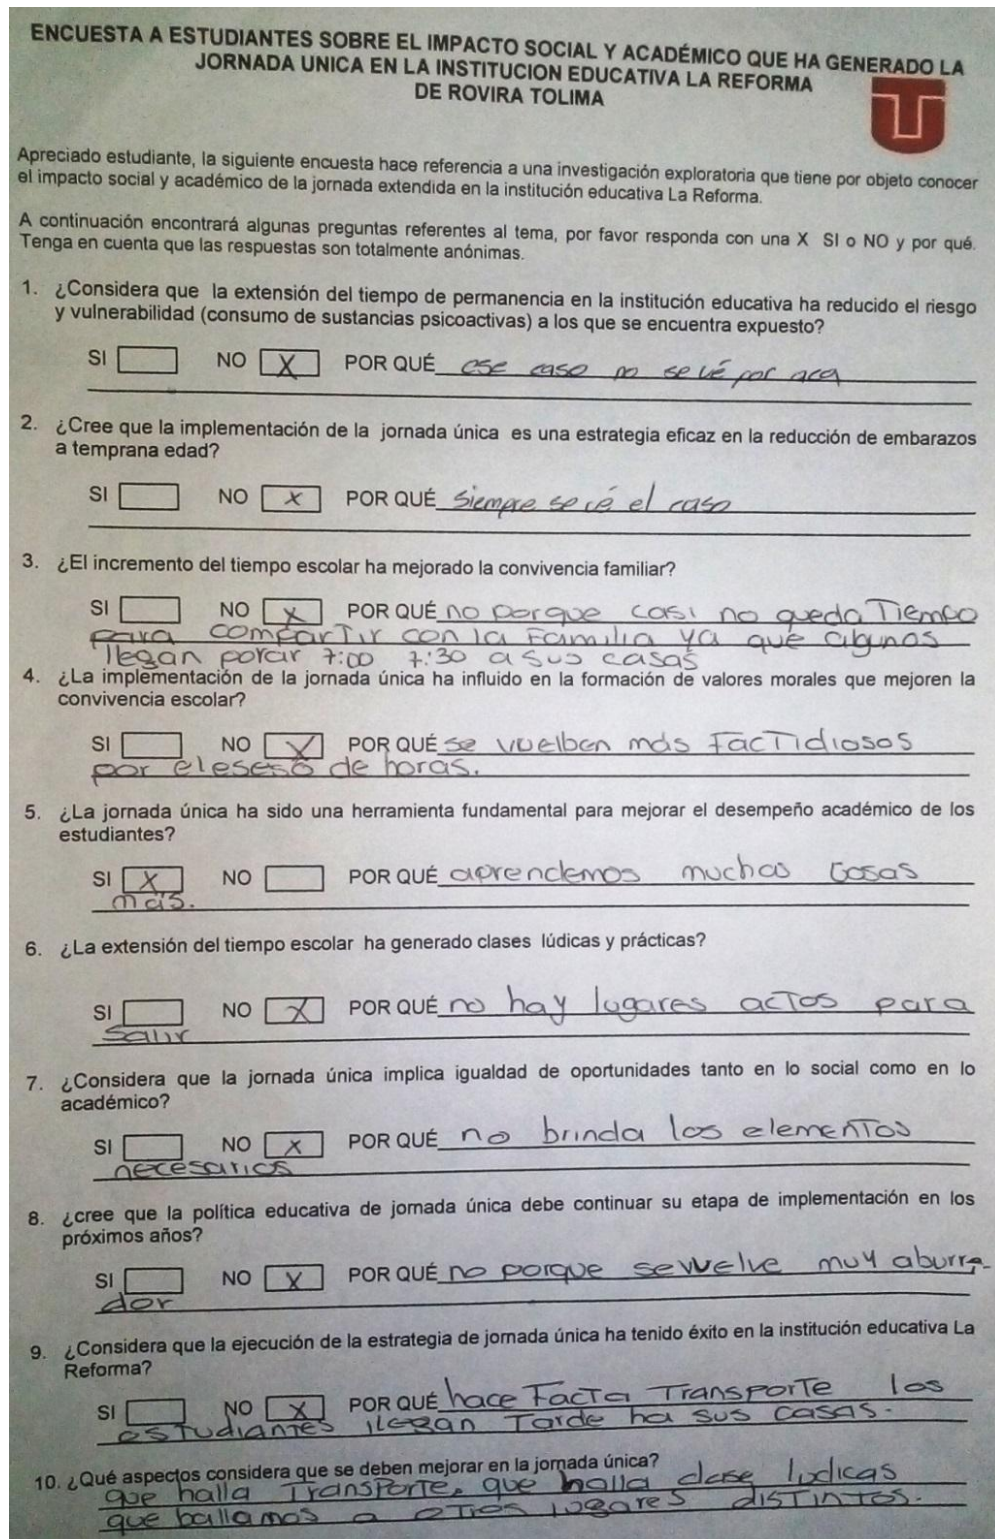 ENCUESTA A ESTUDIANTES SOBRE EL IMPACTO SOCIAL Y ACADÉMICO QUE HA GENERADO LA
JORNADA UNICA EN LA INSTITUCION EDUCATIVA LA REFORMA
DE ROVIRA TOLIMA
Apreciado estudiante, la siguiente encuesta hace referencia a una investigación exploratoria que tiene por objeto conocer
el impacto social y académico de la jornada extendida en la institución educativa La Reforma.
A continuación encontrará algunas preguntas referentes al tema, por favor responda con una X SI o NO y por qué.
Tenga en cuenta que las respuestas son totalmente anónimas.
1. ¿Considera que la extensión del tiempo de permanencia en la institución educativa ha reducido el riesgo
y vulnerabilidad (consumo de sustancias psicoactivas) a los que se encuentra expuesto?
SI NO X POR QUÉ ese caso no se vé por aca
2. ¿Cree que la implementación de la jornada única es una estrategia eficaz en la reducción de embarazos
a temprana edad?
SI NO X POR QUÉ Siempre se vé el caso
3. ¿El incremento del tiempo escolar ha mejorado la convivencia familiar?
SI NO X POR QUÉ no porque casi no queda Tiempo
para comparTir con la Familia ya que algunos
llegan porar 7:00 7:30 a sus casas
4. ¿La implementación de la jornada única ha influido en la formación de valores morales que mejoren la
convivencia escolar?
SI NO X POR QUÉ se vuelben más FacTidiosos
por el eseso de horas.
5. ¿La jornada única ha sido una herramienta fundamental para mejorar el desempeño académico de los
estudiantes?
SI X NO POR QUÉ aprendemos muchas cosas
más.
6. ¿La extensión del tiempo escolar ha generado clases lúdicas y prácticas?
SI NO X POR QUÉ no hay lugares acTos para
salir
7. ¿Considera que la jornada única implica igualdad de oportunidades tanto en lo social como en lo
académico?
SI NO X POR QUÉ no brinda los elemenTos
necesarios
8. ¿cree que la política educativa de jornada única debe continuar su etapa de implementación en los
próximos años?
SI NO X POR QUÉ no porque se vuelve muy aburre
dor
9. ¿Considera que la ejecución de la estrategia de jornada única ha tenido éxito en la institución educativa La
Reforma?
SI NO X POR QUÉ hace FacTa TransporTe los
esTudianTes llegan Tarde ha sus casas.
10. ¿Qué aspectos considera que se deben mejorar en la jornada única?
que halla TransporTe, que halla clase ludicas
que ballamos a oTros lugares disTinTos.